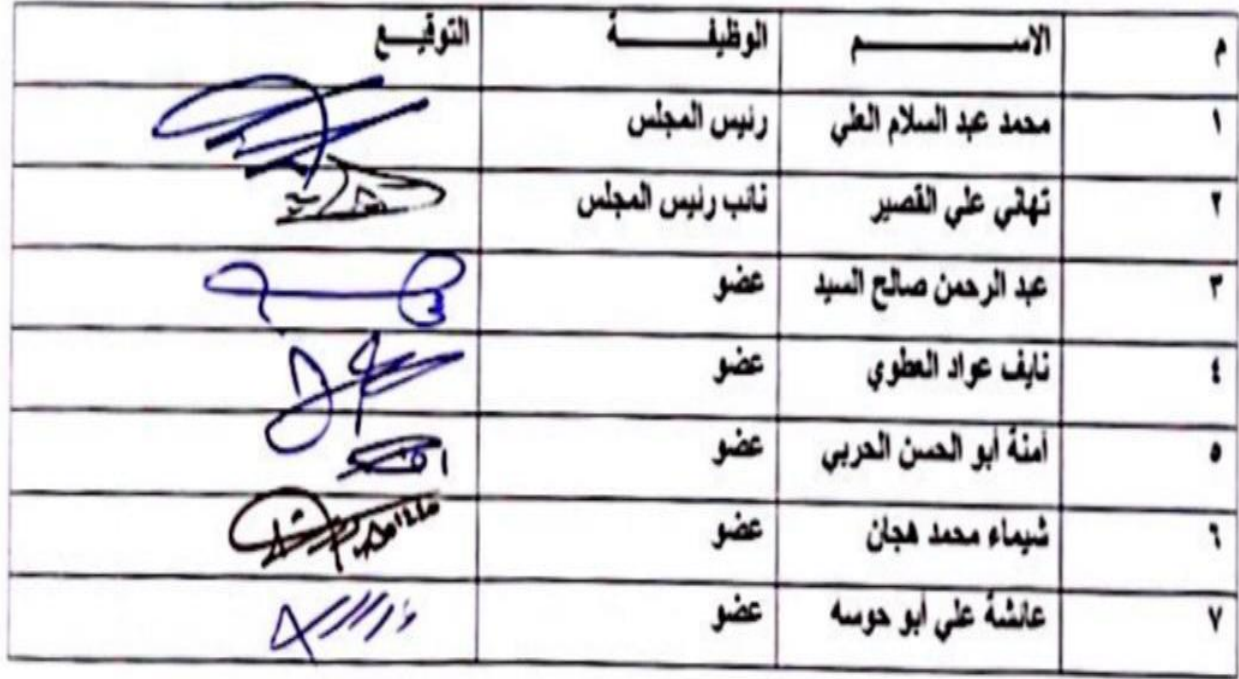 م الاســـــــم الوظيفـــــــة التوقيـــع
١ محمد عبد السلام العلي رئيس المجلس
٢ تهاني علي القصير نائب رئيس المجلس
٣ عبد الرحمن صالح السيد عضو
٤ نايف عواد العطوي عضو
٥ آمنة أبو الحسن الحربي عضو
٦ شيماء محمد هجان عضو
٧ عائشة علي أبو حوسه عضو